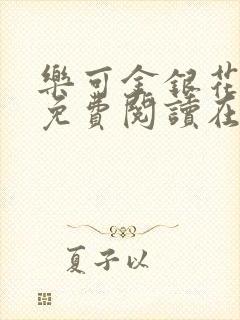 樂可金銀花
免費閱讀在
夏子以